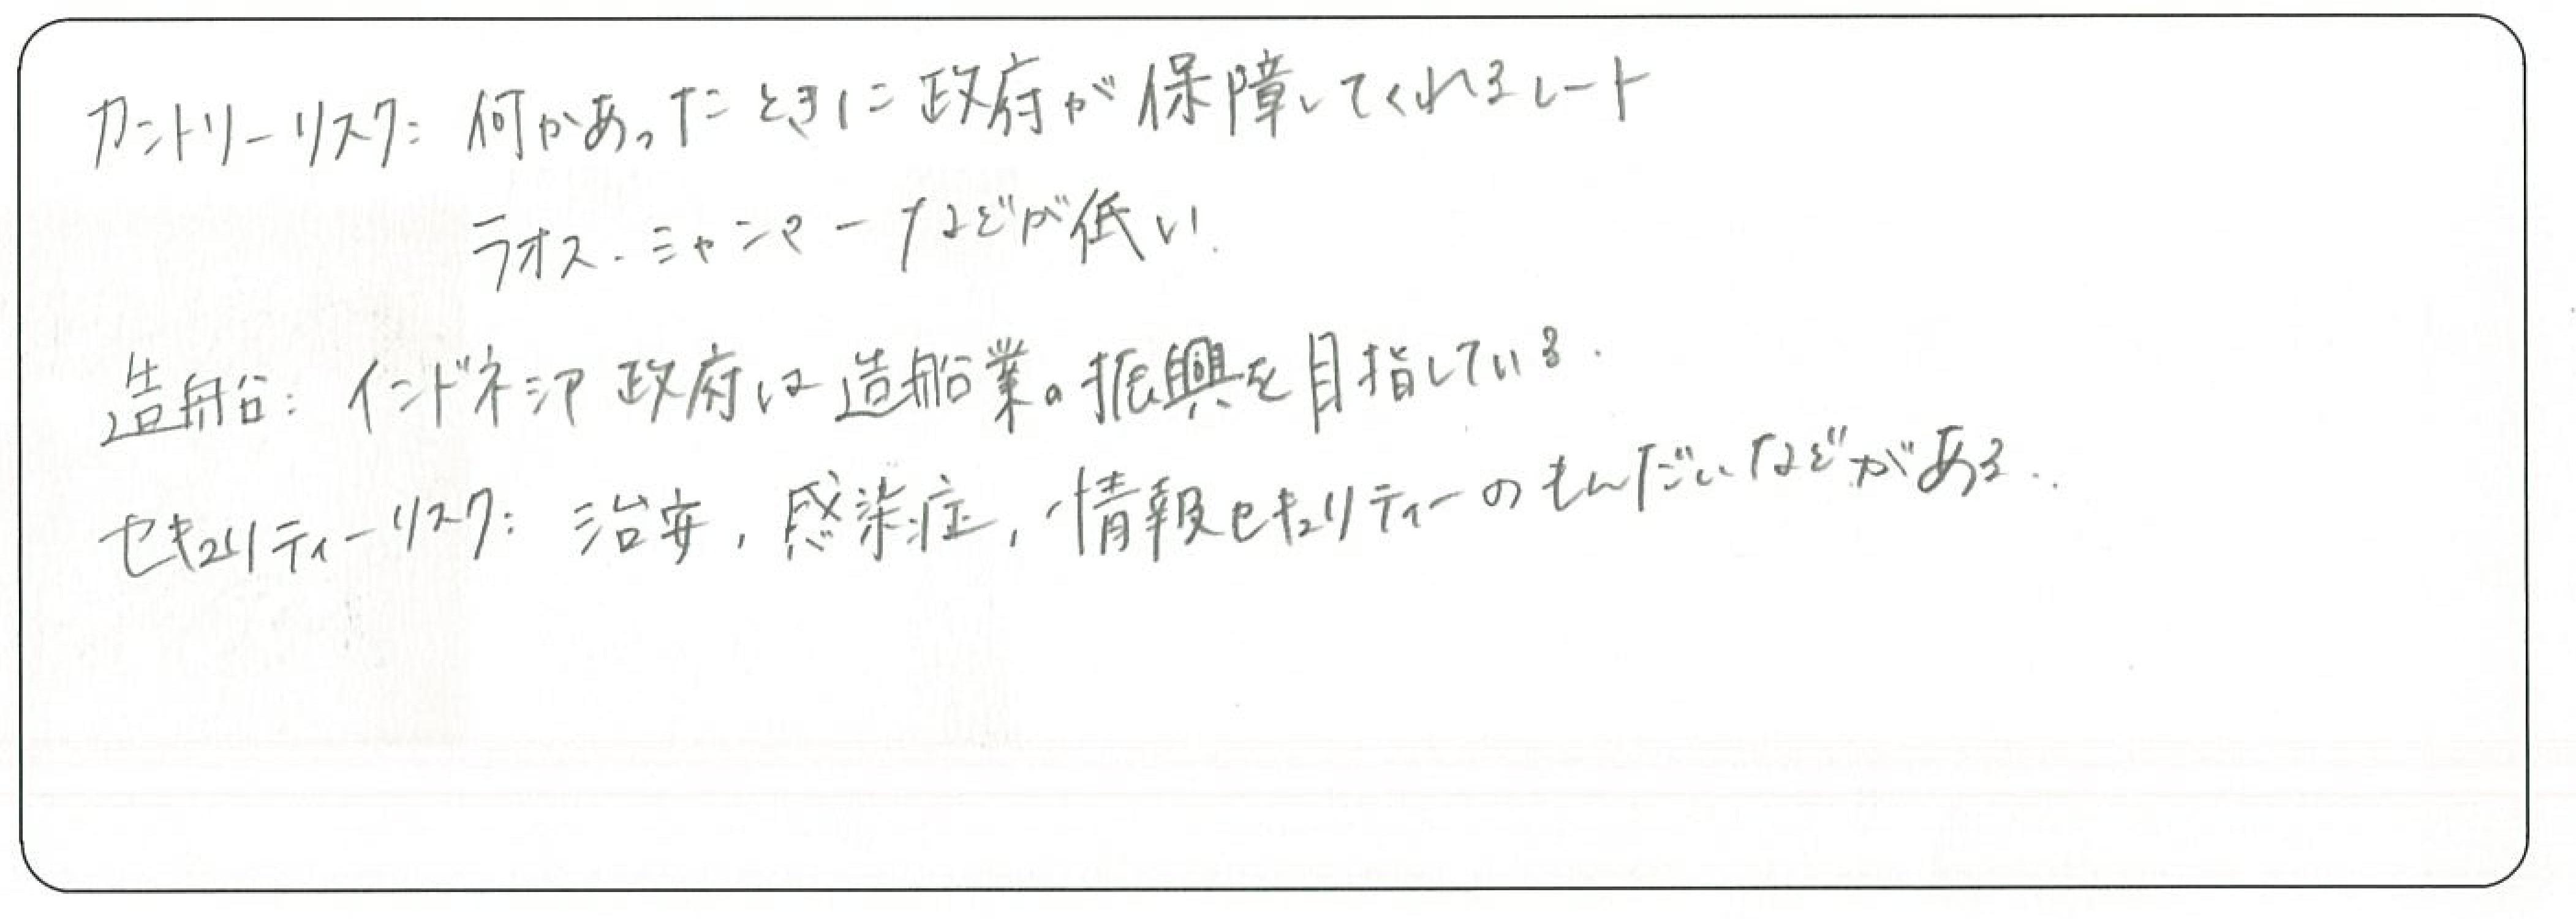 カントリーリスク: 何かあったときに政府が保障してくれるレート
ラオス.ミャンマーなどが低い.
造船: インドネシア政府は造船業の振興を目指している.
セキュリティーリスク: 治安, 感染症, 情報セキュリティーのもんだいなどがある..